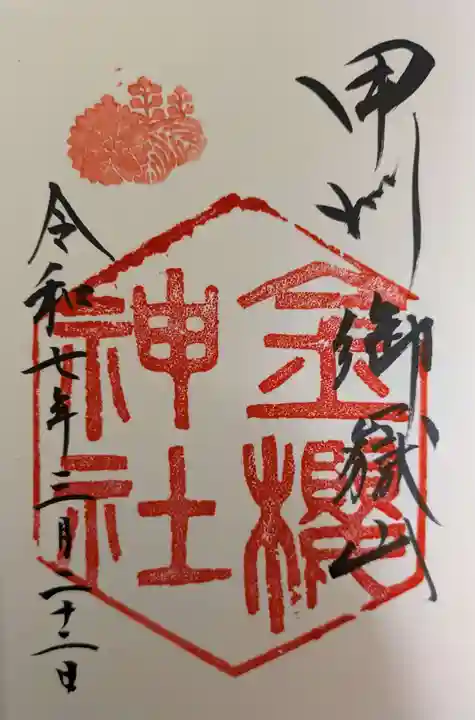 甲州 御嶽山
金櫻
神社
令和七年三月二十二日